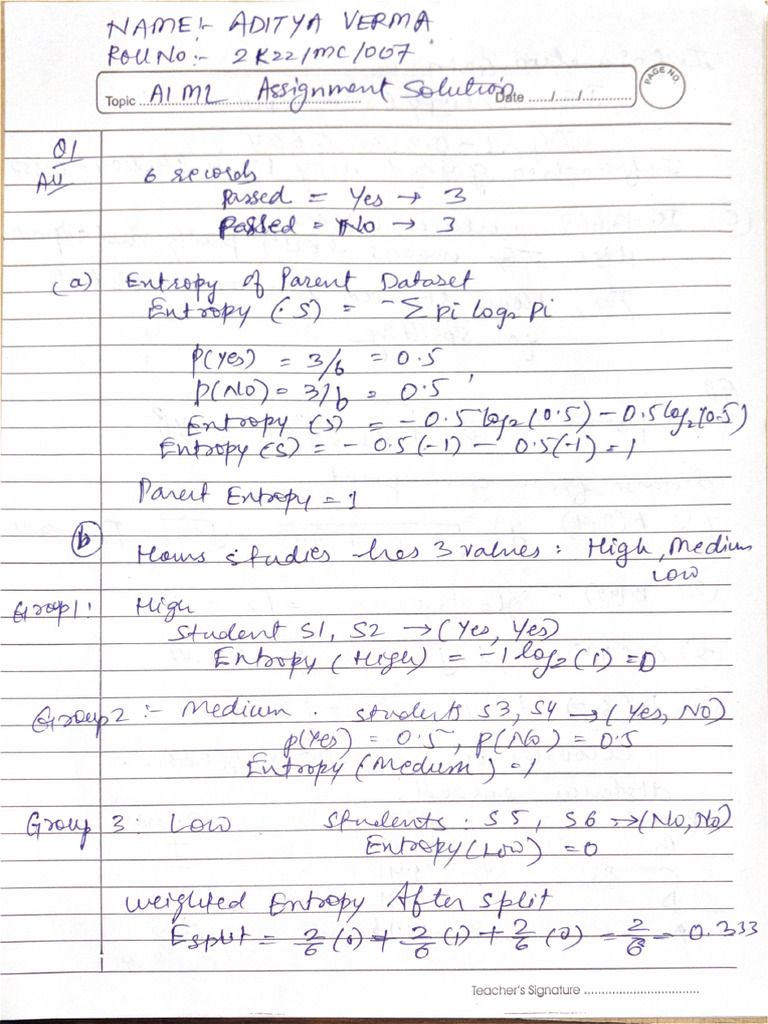 NAME:- ADITYA VERMA
ROLL NO:- 2K22/MC/007
PAGE NO
Topic AIML Assignment Solution Date ....../....../............
Q1
All 6 records
Passed = Yes → 3
Passed = No → 3
(a) Entropy of Parent Dataset
Entropy (S) = -Σ pi log₂ pi
p(Yes) = 3/6 = 0.5
p(No) = 3/6 = 0.5
Entropy (S) = -0.5 log₂ (0.5) - 0.5 log₂ (0.5)
Entropy (S) = -0.5(-1) - 0.5(-1) = 1
Parent Entropy = 1
(b) Hours studies has 3 values: High, Medium
Low
Group 1: High
Student S1, S2 → (Yes, Yes)
Entropy (High) = -1 log₂ (1) = 0
Group 2 :- Medium. students S3, S4 → (Yes, No)
p(Yes) = 0.5, p(No) = 0.5
Entropy (Medium) = 1
Group 3: Low Students. S5, S6 → (No, No)
Entropy (Low) = 0
Weighted Entropy After split
Esplit = 2/6 (0) + 2/6 (1) + 2/6 (0) = 2/6 = 0.333
Teacher's Signature ................................